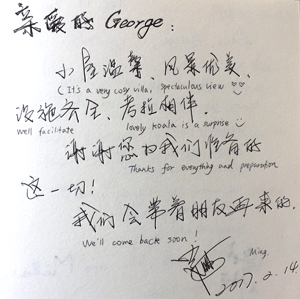 亲爱的 George:
小屋温馨、风景优美、
(It's a very cosy villa, spectaculous view
设施齐全、考拉相伴。
Well facilitate lovely koala is a surprise
谢谢您为我们准备的
Thanks for everything and preparation
这一切!
我们会带着朋友再来的.
We'll come back soon!
Ming.
2017.2.14